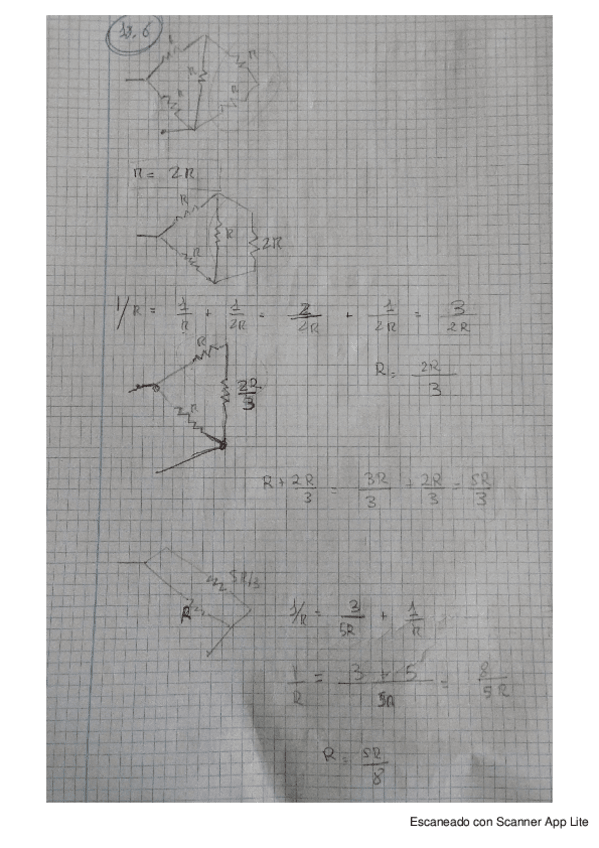 12.6
R
R
R
R
R
R = 2R
R
R
2R
R
1/R = 1/R + 1/2R = 2/2R + 1/2R = 3/2R
R
R = 2R/3
2R/3
R
R + 2R/3 = 3R/3 + 2R/3 = 5R/3
5R/3
R
1/R = 3/5R + 1/R
1/R = 3 + 5/5R = 8/5R
R = 5R/8
Escaneado con Scanner App Lite